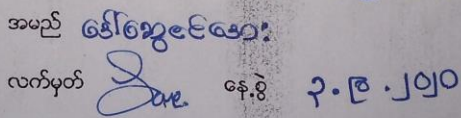 အမည် ဒေါ်ဆွေဇင်အေး
လက်မှတ် နေ့စွဲ ၃.၉.၂၀၂၀